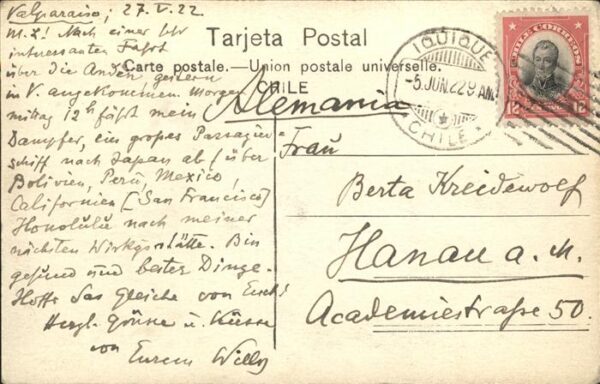 Valparaiso, 27.V.22
M.L! Nach einer sehr
interessanten Fahrt
über die Anden, gestern
in V. angekommen. Morgen
mittag 12h fährt mein
Dampfer, ein großes Passagier-
schiff nach Japan ab/über
Bolivien, Perú, Mexico,
Californien [San Francisco)
Honolulu nach meiner
nächsten Wirkgsstätte. Bin
gesund und bester Dinge.
Hoffe das Gleiche von Euch!
Herzl. Grüsse u. Küsse
von Eurem Willy
Tarjeta Postal
Carte postale.—Union postale universelle.
CHILE
Alemania
Frau
Berta Kreidewolf
Hanau a. M.
Academiestraße 50.
IQUIQUE
-5.JUN.22 9 AM
CHILE
CHILE CORREOS